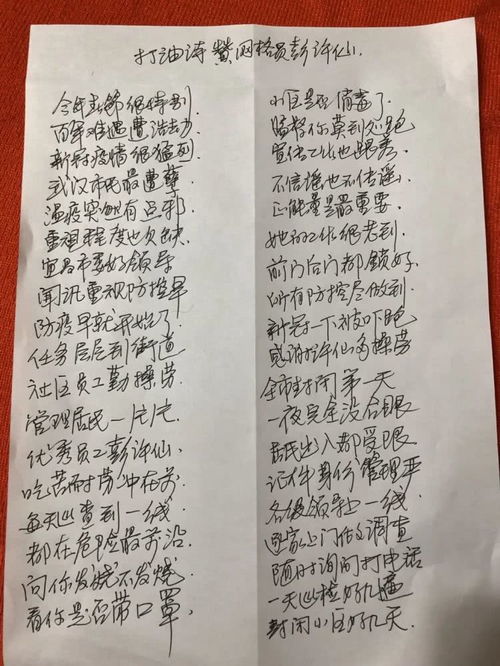 打油诗 赞网格员彭许仙
今年春节很特别
百年难遇遭浩劫
新冠疫情很猛烈
武汉市民最遭孽
瘟疫突然有点邪
重视程度也欠缺
宜昌市委好领导
闻讯重视防控早
防疫早就开始了
任务层层到街道
社区员工勤操劳
管理居民一片片
优秀员工彭许仙
吃苦耐劳冲在前
每天心查到一线
都在危险最前沿
问你发烧不发烧
看你是否带口罩
小区是否消毒了
监督你莫到处跑
宣传工作也跟去
不信谣也不传谣
正能量是最重要
她的工作很老到
前门后门都锁好
所有防控尽做到
新冠一下被吓跑
感谢许仙多操劳
全市封闭第一天
一夜完全没合眼
居民出入都受限
证件身份管理严
各级领导上一线
逐家上门作调查
随时询问打电话
一天巡检好几遍
封闭小区好几天